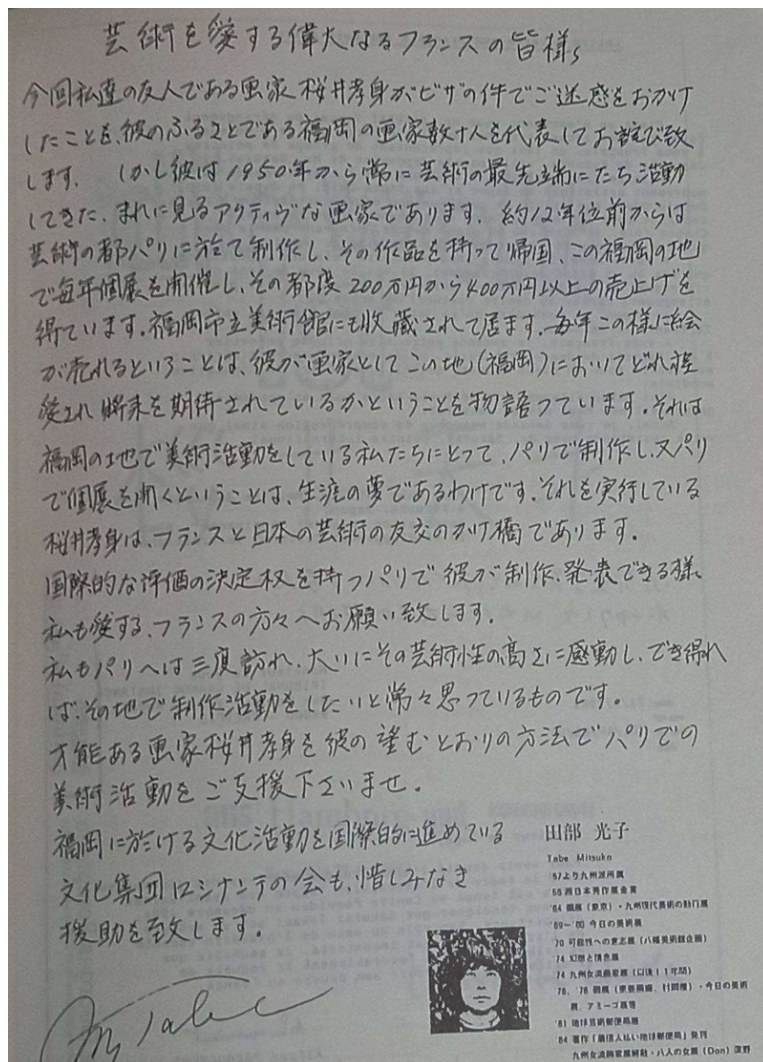 芸術を愛する偉大なるフランスの皆様、
今回私達の友人である画家桜井孝身がビザの件でご迷惑をおかけ
したことを、彼のふるさとである福岡の画家数十人を代表してお詫び致
します。 しかし彼は1950年から常に芸術の最先端にたち活動
してきた、まれに見るアクティヴな画家であります。約12年位前からは
芸術の都パリに於て制作し、その作品を持って帰国、この福岡の地
で毎年個展を開催し、その都度200万円から400万円以上の売上げを
得ています。福岡市立美術館にも収蔵されて居ます。毎年この様に絵
が売れるということは、彼が画家としてこの地(福岡)においてどれ程
愛され将来を期待されているかということを物語っています。それは
福岡の地で美術活動をしている私たちにとって、パリで制作し、又パリ
で個展を開くということは、生涯の夢であるわけです。それを実行している
桜井孝身は、フランスと日本の芸術の友交のかけ橋であります。
国際的な評価の決定权を持つパリで彼が制作、発表できる様、
私も愛する、フランスの方々へお願い致します。
私もパリへは三度訪れ、大いにその芸術性の高さに感動し、でき得れ
ば、その地で制作活動をしたいと常々思っているものです。
才能ある画家桜井孝身を彼の望むとおりの方法でパリでの
美術活動をご支援下さいませ。
福岡に於ける文化活動を国際的に進めている
文化集団ロシナンテの会も、惜しみなき
援助を致します。
M, Tabe
田部 光子
Tabe Mitsuko
'57より九州派所属
'58西日本秀作展金賞
'64 個展(東京)・九州現代美術の動向展
'69〜'80 今日の美術展
'70 可能性への意志展(八幡美術館企画)
'74 幻想と情念展
'74 九州女流画家展(以後11年間)
'76、'78 個展(東京画廊、村岡屋)・今日の美術
展、アミーゴ展等
'81 地球芸術郵便局展
'84 著作「着信人払い地球郵便局」発刊
九州女流画家展解散・八人の女展(Don)